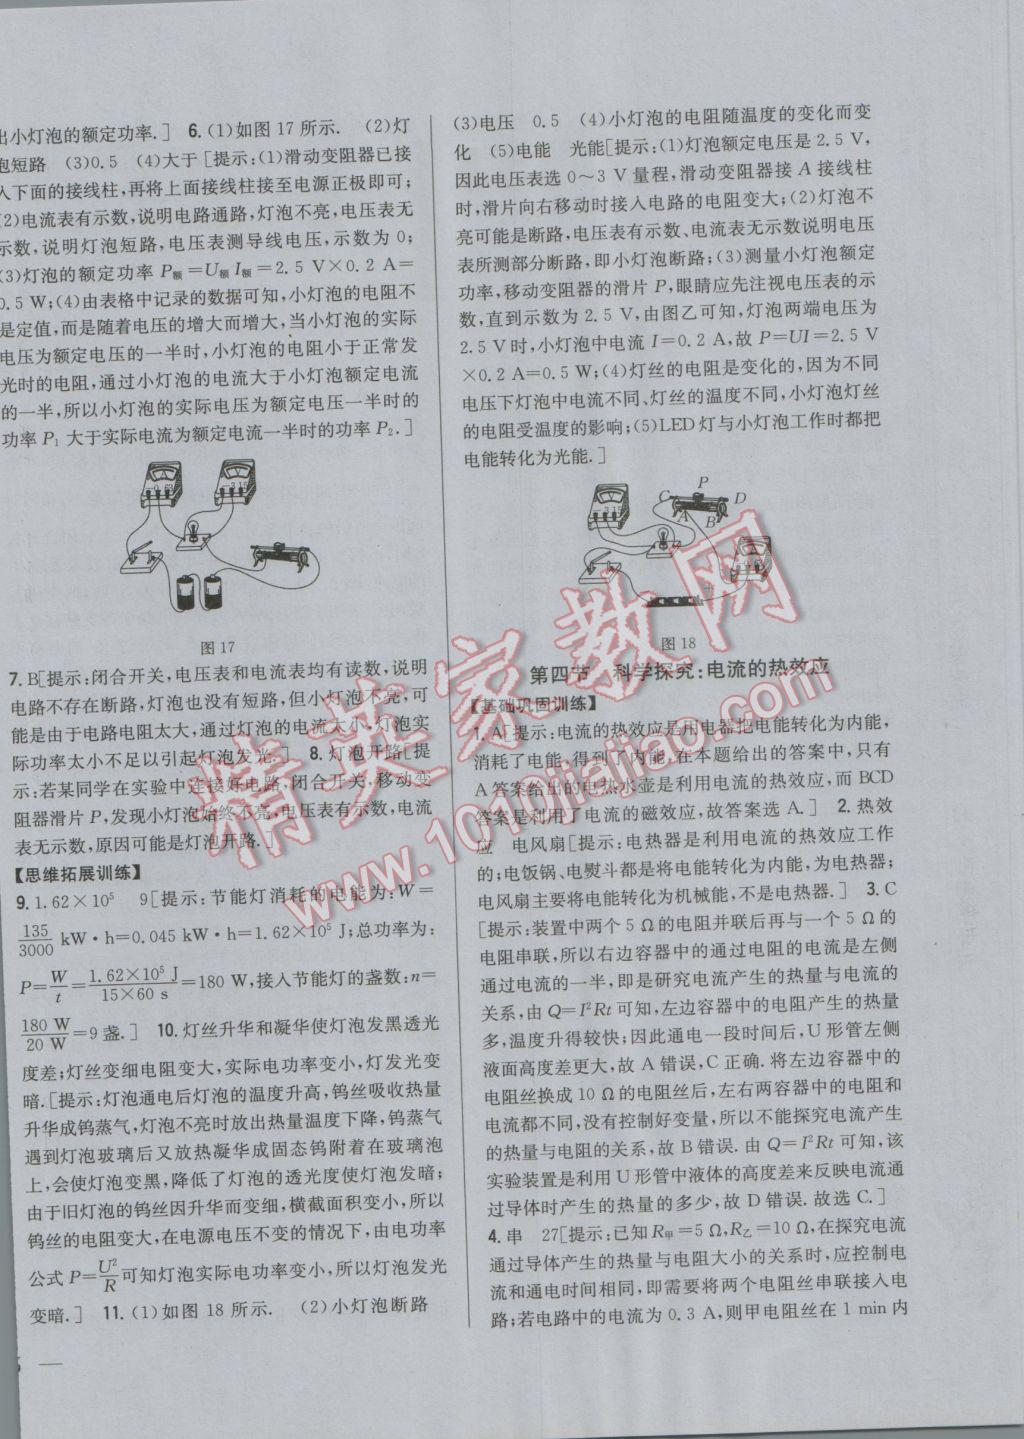 出小灯泡的额定功率.] 6.(1)如图 17 所示. (2)灯
泡短路 (3)0.5 (4)大于[提示:(1)滑动变阻器已接
入下面的接线柱,再将上面接线柱接至电源正极即可;
(2)电流表有示数,说明电路通路,灯泡不亮,电压表无
示数,说明灯泡短路,电压表测导线电压,示数为 0;
(3)灯泡的额定功率 P额=U额 I额=2.5 V×0.2 A=
0.5 W;(4)由表格中记录的数据可知,小灯泡的电阻不
是定值,而是随着电压的增大而增大,当小灯泡的实际
电压为额定电压的一半时,小灯泡的电阻小于正常发
光时的电阻,通过小灯泡的电流大于小灯泡额定电流
的一半,所以小灯泡的实际电压为额定电压一半时的
功率 P1 大于实际电流为额定电流一半时的功率 P2.]
图 17
7. B[提示:闭合开关,电压表和电流表均有读数,说明
电路不存在断路,灯泡也没有短路,但小灯泡不亮,可
能是由于电路电阻太大,通过灯泡的电流太小,灯泡实
际功率太小不足以引起灯泡发光.] 8. 灯泡开路[提
示:若某同学在实验中连接好电路,闭合开关,移动变
阻器滑片 P,发现小灯泡始终不亮,电压表有示数,电流
表无示数,原因可能是灯泡开路.]
【思维拓展训练】
9. 1.62×10⁵ 9[提示:节能灯消耗的电能为:W=
135/3000 kW·h=0.045 kW·h=1.62×10⁵ J;总功率为:
P=W/t=1.62×10⁵ J/15×60 s=180 W,接入节能灯的盏数:n=
180 W/20 W=9 盏.] 10. 灯丝升华和凝华使灯泡发黑透光
度差;灯丝变细电阻变大,实际电功率变小,灯发光变
暗.[提示:灯泡通电后灯泡的温度升高,钨丝吸收热量
升华成钨蒸气,灯泡不亮时放出热量温度下降,钨蒸气
遇到玻璃后又放热凝华成固态钨附着在玻璃泡
上,会使灯泡变黑,降低了灯泡的透光度使灯泡发暗;
由于旧灯泡的钨丝因升华而变细,横截面积变小,所以
钨丝的电阻变大,在电源电压不变的情况下,由电功率
公式 P=U²/R可知灯泡实际电功率变小,所以灯泡发光
变暗.] 11. (1)如图 18 所示. (2)小灯泡断路
(3)电压 0.5 (4)小灯泡的电阻随温度的变化而变
化 (5)电能 光能[提示:(1)灯泡额定电压是 2.5 V,
因此电压表选 0~3 V 量程,滑动变阻器接 A 接线柱
时,滑片向右移动时接入电路的电阻变大;(2)灯泡不
亮可能是断路,电压表有示数、电流表无示数说明电压
表所测部分断路,即小灯泡断路;(3)测量小灯泡额定
功率,移动变阻器的滑片 P,眼睛应先注视电压表的示
数,直到示数为 2.5 V,由图乙可知,灯泡两端电压为
2.5 V时,小灯泡中电流 I=0.2 A,故 P=UI=2.5 V
×0.2 A=0.5 W;(4)灯丝的电阻是变化的,因为不同
电压下灯泡中电流不同、灯丝的温度不同,小灯泡灯丝
的电阻受温度的影响;(5)LED 灯与小灯泡工作时都把
电能转化为光能.]
P
C D
A B
图 18
第四节 科学探究:电流的热效应
【基础巩固训练】
1. A[提示:电流的热效应是用电器把电能转化为内能,
消耗了电能,得到了内能,在本题给出的答案中,只有
A 答案给出的电热水壶是利用电流的热效应,而 BCD
答案是利用了电流的磁效应,故答案选 A.] 2. 热效
应 电风扇[提示:电热器是利用电流的热效应工作
的;电饭锅、电熨斗都是将电能转化为内能,为电热器;
电风扇主要将电能转化为机械能,不是电热器.] 3. C
[提示:装置中两个 5 Ω 的电阻并联后再与一个 5 Ω 的
电阻串联,所以右边容器中的通过电阻的电流是左侧
通过电流的一半,即是研究电流产生的热量与电流的
关系,由 Q=I²Rt 可知,左边容器中的电阻产生的热量
多,温度升得较快;因此通电一段时间后,U 形管左侧
液面高度差更大,故 A 错误,C 正确. 将左边容器中的
电阻丝换成 10 Ω 的电阻丝后,左右两容器中的电阻和
电流都不同,没有控制好变量,所以不能探究电流产生
的热量与电阻的关系,故 B 错误. 由 Q=I²Rt 可知,该
实验装置是利用 U 形管中液体的高度差来反映电流
通过导体时产生的热量的多少,故 D 错误. 故选 C.]
4. 串 27[提示:已知 R甲=5 Ω,R乙=10 Ω,在探究电流
通过导体产生的热量与电阻大小的关系时,应控制电
流和通电时间相同,即需要将两个电阻丝串联接入电
路;若电路中的电流为 0.3 A,则甲电阻丝在 1 min 内
精英家教网
www.1010jiajiao.com